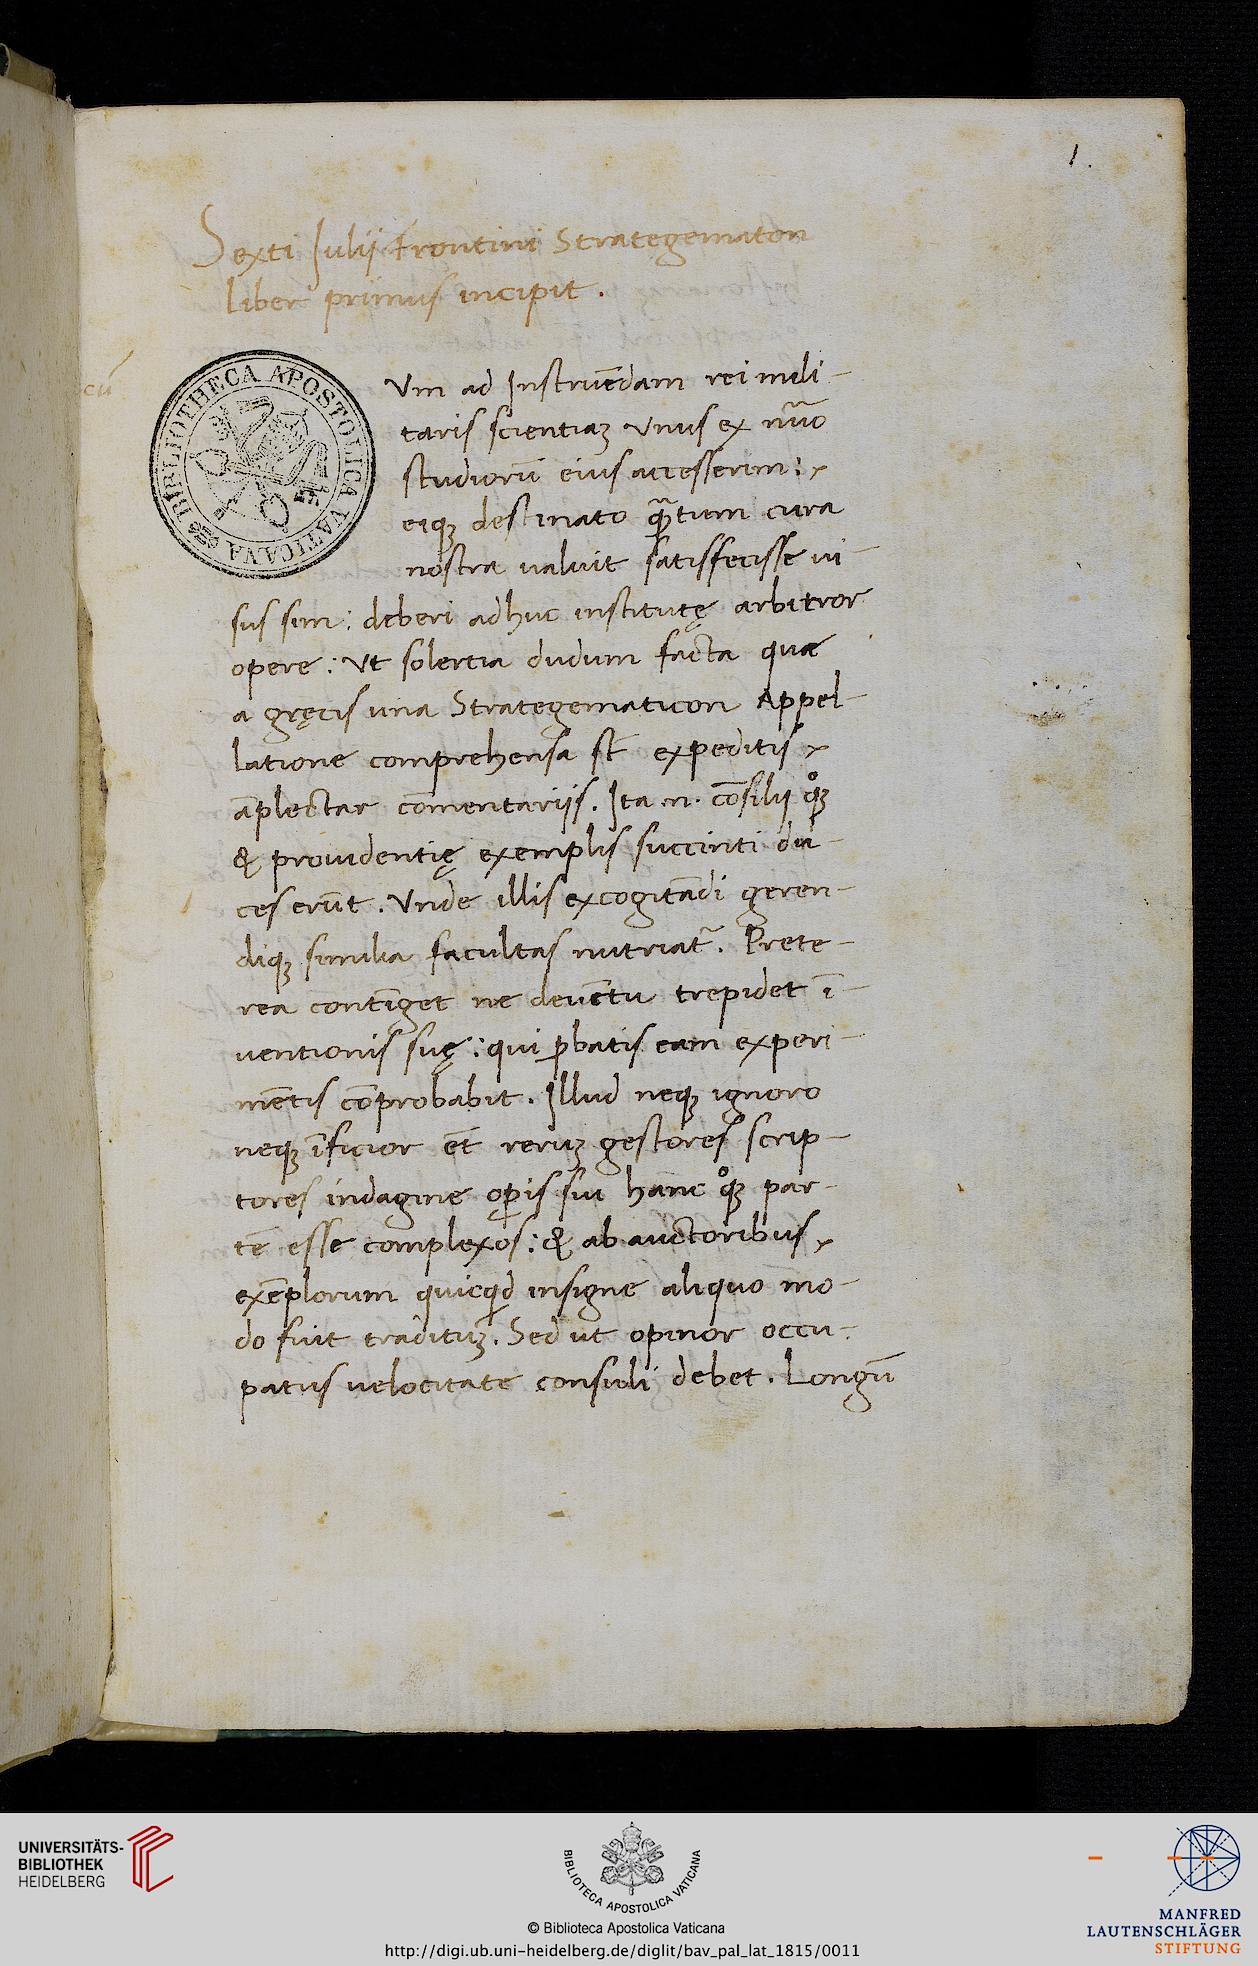 1.
Sexti Iulij Frontini Strategematon
liber primus incipit.
cū
BIBLIOTHECA APOSTOLICA VATICANA
Vm ad Instruēdam rei mili-
taris scientiaꝫ Vnus ex nūo
studiorū eius accesserim:
eiqꝫ destinato quātum cura
nostra valuit satisfecisse vi-
sus sim: deberi adhuc institutę arbitror
opere: Vt solertia dudum facta quae
a gręcis una Strategematicon Appel-
latione comprehensa st̄ expeditis
āplectar com̄entariis. Ita .n. cōsilij qͦꝫ
& prouidentię exemplis succinti du-
ces erūt. Vnde illis excogitādi geren-
diqꝫ similia facultas nutriat̃. Prete-
rea contīget ne deuētu trepidet ī-
uentionis suę: qui ꝓbatis eam experi-
mētis cōprobabit. Illud neqꝫ ignoro
neqꝫ īficior et̄ reruꝫ gestores scrip-
tores indagine oꝑis sui hanc qͦꝫ par-
tē esse complexos: & ab auctoribus
exēplorum quicqd insigne aliquo mo-
do fuit tradituꝫ. Sed ut opinor occu-
patus uelocitate consuli debet. Longū
UNIVERSITÄTS-
BIBLIOTHEK
HEIDELBERG
BIBLIOTECA APOSTOLICA VATICANA
© Biblioteca Apostolica Vaticana
http://digi.ub.uni-heidelberg.de/diglit/bav_pal_lat_1815/0011
MANFRED
LAUTENSCHLÄGER
STIFTUNG